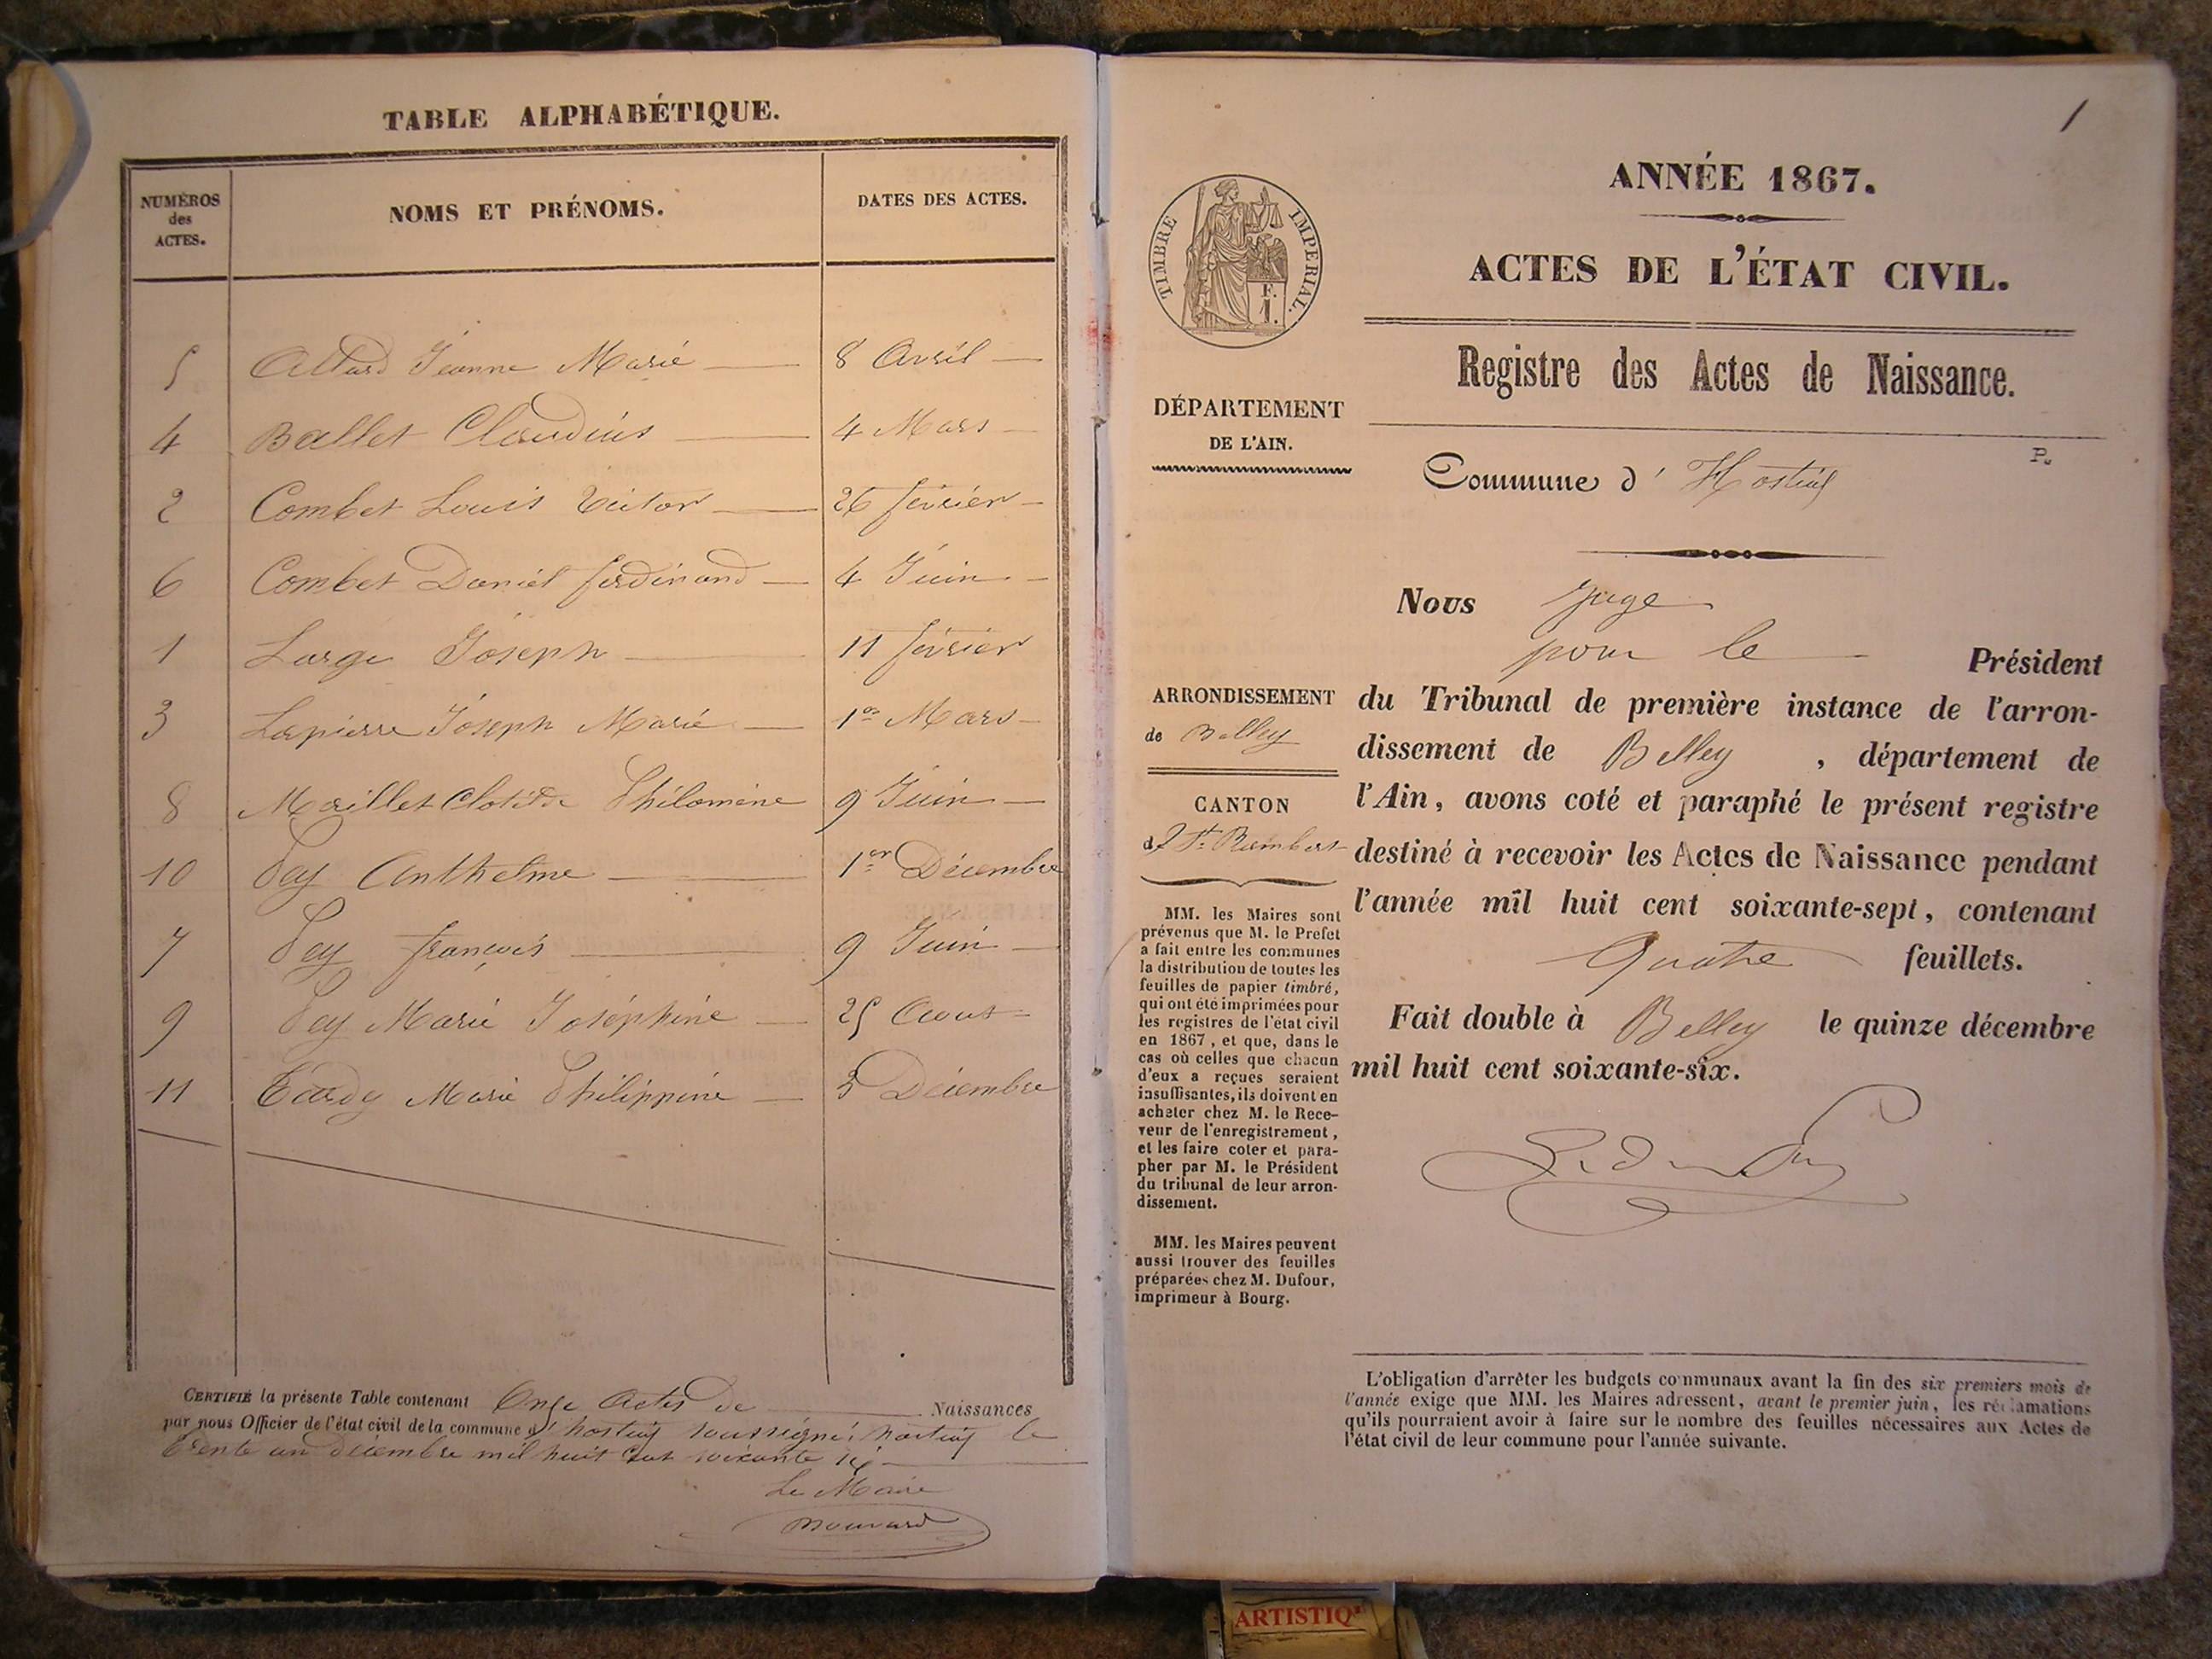 TABLE ALPHABÉTIQUE.
NUMÉROS des ACTES. NOMS ET PRÉNOMS. DATES DES ACTES.
5 Allard Jeanne Marie 8 Avril
4 Ballet Claudius 4 Mars
2 Combet Louis Victor 26 février
6 Combet Daniel ferdinand 4 Juin
1 Large Joseph 11 février
3 Lapierre Joseph Marie 1er Mars
8 Maillet Clotilde Philomène 9 Juin
10 Pey Anthelme 1er Décembre
7 Pey françois 9 Juin
9 Pey Marie Joséphine 25 Aout
11 Tardy Marie Philippine 3 Décembre
CERTIFIÉ la présente Table contenant Onze Actes de Naissances
par nous Officier de l'état civil de la commune d' hostiaz soussigné, hostiaz le
trente un decembre mil huit cent soixante six
Le Maire
1
ANNÉE 1867.
ACTES DE L'ÉTAT CIVIL.
TIMBRE IMPERIAL.
F.
1.
Registre des Actes de Naissance.
DÉPARTEMENT
DE L'AIN.
P.
Commune d' Hostiaz
Nous Juge
pour le Président
ARRONDISSEMENT
de Belley
CANTON
de St Rambert
du Tribunal de première instance de l'arron-
dissement de Belley , département de
l'Ain, avons coté et paraphé le présent registre
destiné à recevoir les Actes de Naissance pendant
l'année mil huit cent soixante-sept, contenant
Quatre feuillets.
Fait double à Belley le quinze décembre
mil huit cent soixante-six.
MM. les Maires sont
prévenus que M. le Prefet
a fait entre les communes
la distribution de toutes les
feuilles de papier timbré,
qui ont été imprimées pour
les registres de l'état civil
en 1867, et que, dans le
cas où celles que chacun
d'eux a reçues seraient
insuffisantes, ils doivent en
acheter chez M. le Rece-
veur de l'enregistrement,
et les faire coter et para-
pher par M. le Président
du tribunal de leur arron-
dissement.
MM. les Maires peuvent
aussi trouver des feuilles
préparées chez M. Dufour,
imprimeur à Bourg.
L'obligation d'arrêter les budgets communaux avant la fin des six premiers mois de
l'année exige que MM. les Maires adressent, avant le premier juin, les réclamations
qu'ils pourraient avoir à faire sur le nombre des feuilles nécessaires aux Actes de
l'état civil de leur commune pour l'année suivante.
ARTISTIQ